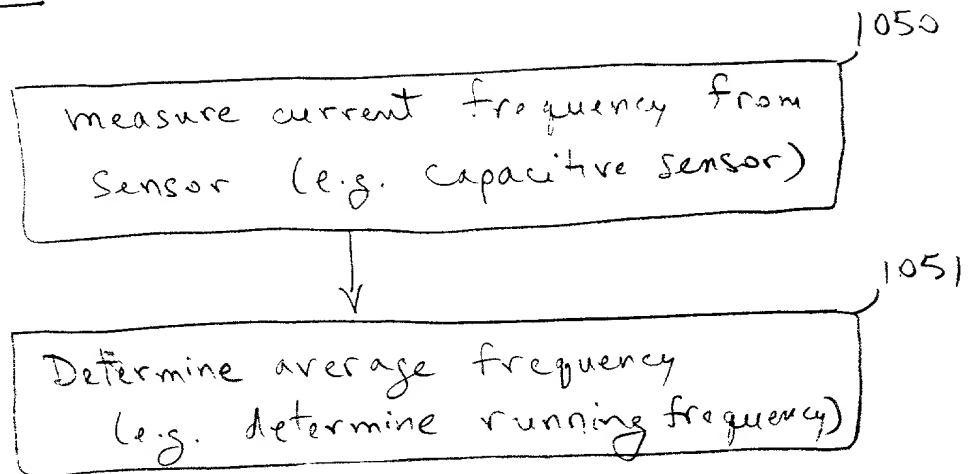 1050
measure current frequency from
Sensor (e.g. capacitive sensor)
1051
Determine average frequency
(e.g. determine running frequency)